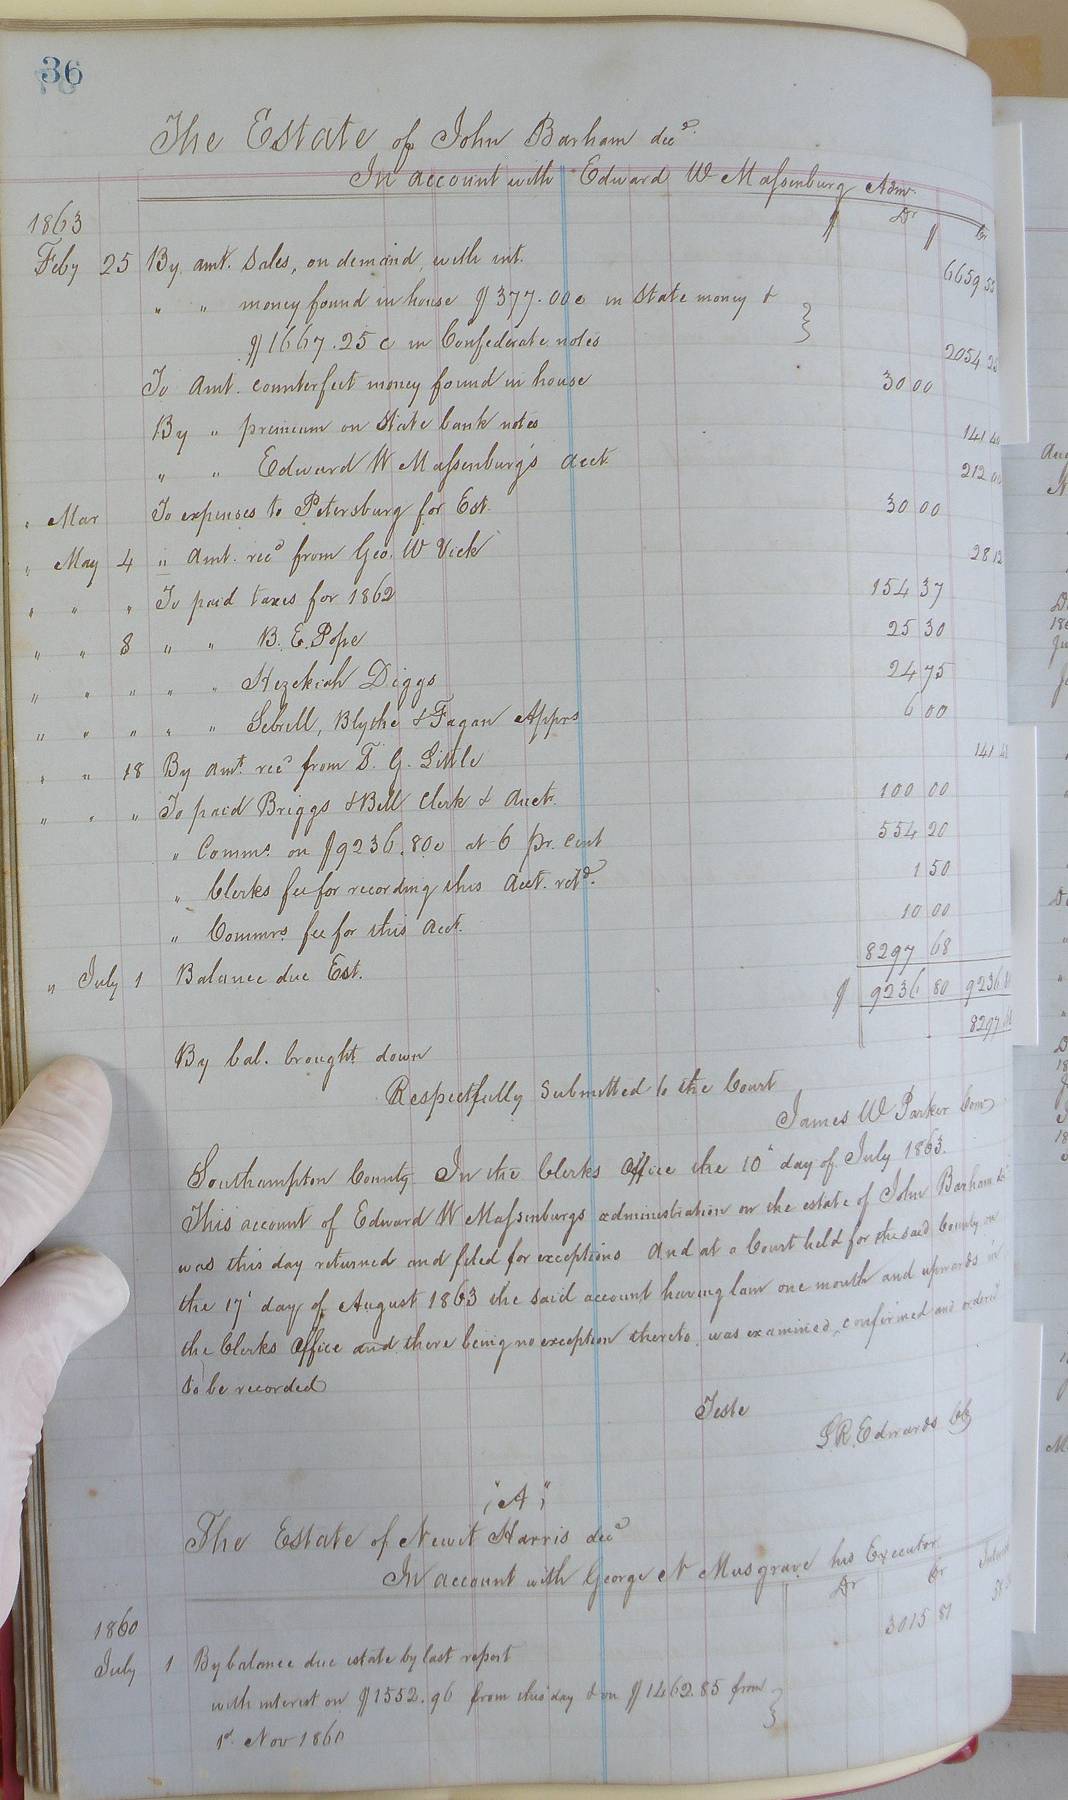 36
The Estate of John Barham decd.
In account with Edward W Massenburg Admr.
$ Dr $ Cr
1863
Feby 25 By amt. Sales, on demand, with int. 6659 55
" " money found in house $377.00c in State money &
$1667.25c in Confederate notes 2054 25
To Amt. counterfeit money found in house 30 00
By " premium on State bank notes 141 40
" " Edward W Massenburg's acct 212 00
" Mar To expenses to Petersburg for Est. 30 00
" May 4 " Amt. recd from Geo. W Vick 28 12
" " " To paid taxes for 1862 154 37
" " 8 " " B. E. Pope 25 30
" " " " " Hezekiah Diggs 24 75
" " " " " Sebrell, Blythe & Fagan Apprs 6 00
" " 18 By amt. recd from T. G. Little 141 48
" " " To paid Briggs & Bell Clerk & Auct. 100 00
" Comms. on $9236.80c at 6 pr. cent 554 20
" Clerks fee for recording this Acct. retd. 1 50
" Commrs. fee for this acct. 10 00
" July 1 Balance due Est. 8297 68
$ 9236 80 9236 80
By bal. brought down 8297 68
Respectfully Submitted to the Court
James W Parker Comr
Southampton County In the Clerks Office the 10" day of July 1863.
This account of Edward W Massenburgs administration on the estate of John Barham dec
was this day returned and filed for exceptions And at a Court held for the said County on
the 17' day of August 1863 the said account having lain one month and upwards in
the Clerks Office and there being no exception thereto, was examined, confirmed and ordered
to be recorded
Teste
L R. Edwards CC
"A"
The Estate of Newit Harris decd
In account with George N Musgrave his Executor
Dr Cr Interest
1860
July 1 By balance due estate by last report 3015 81
with interest on $1552.96 from this day & on $1462.85 from
1st. Nov 1860